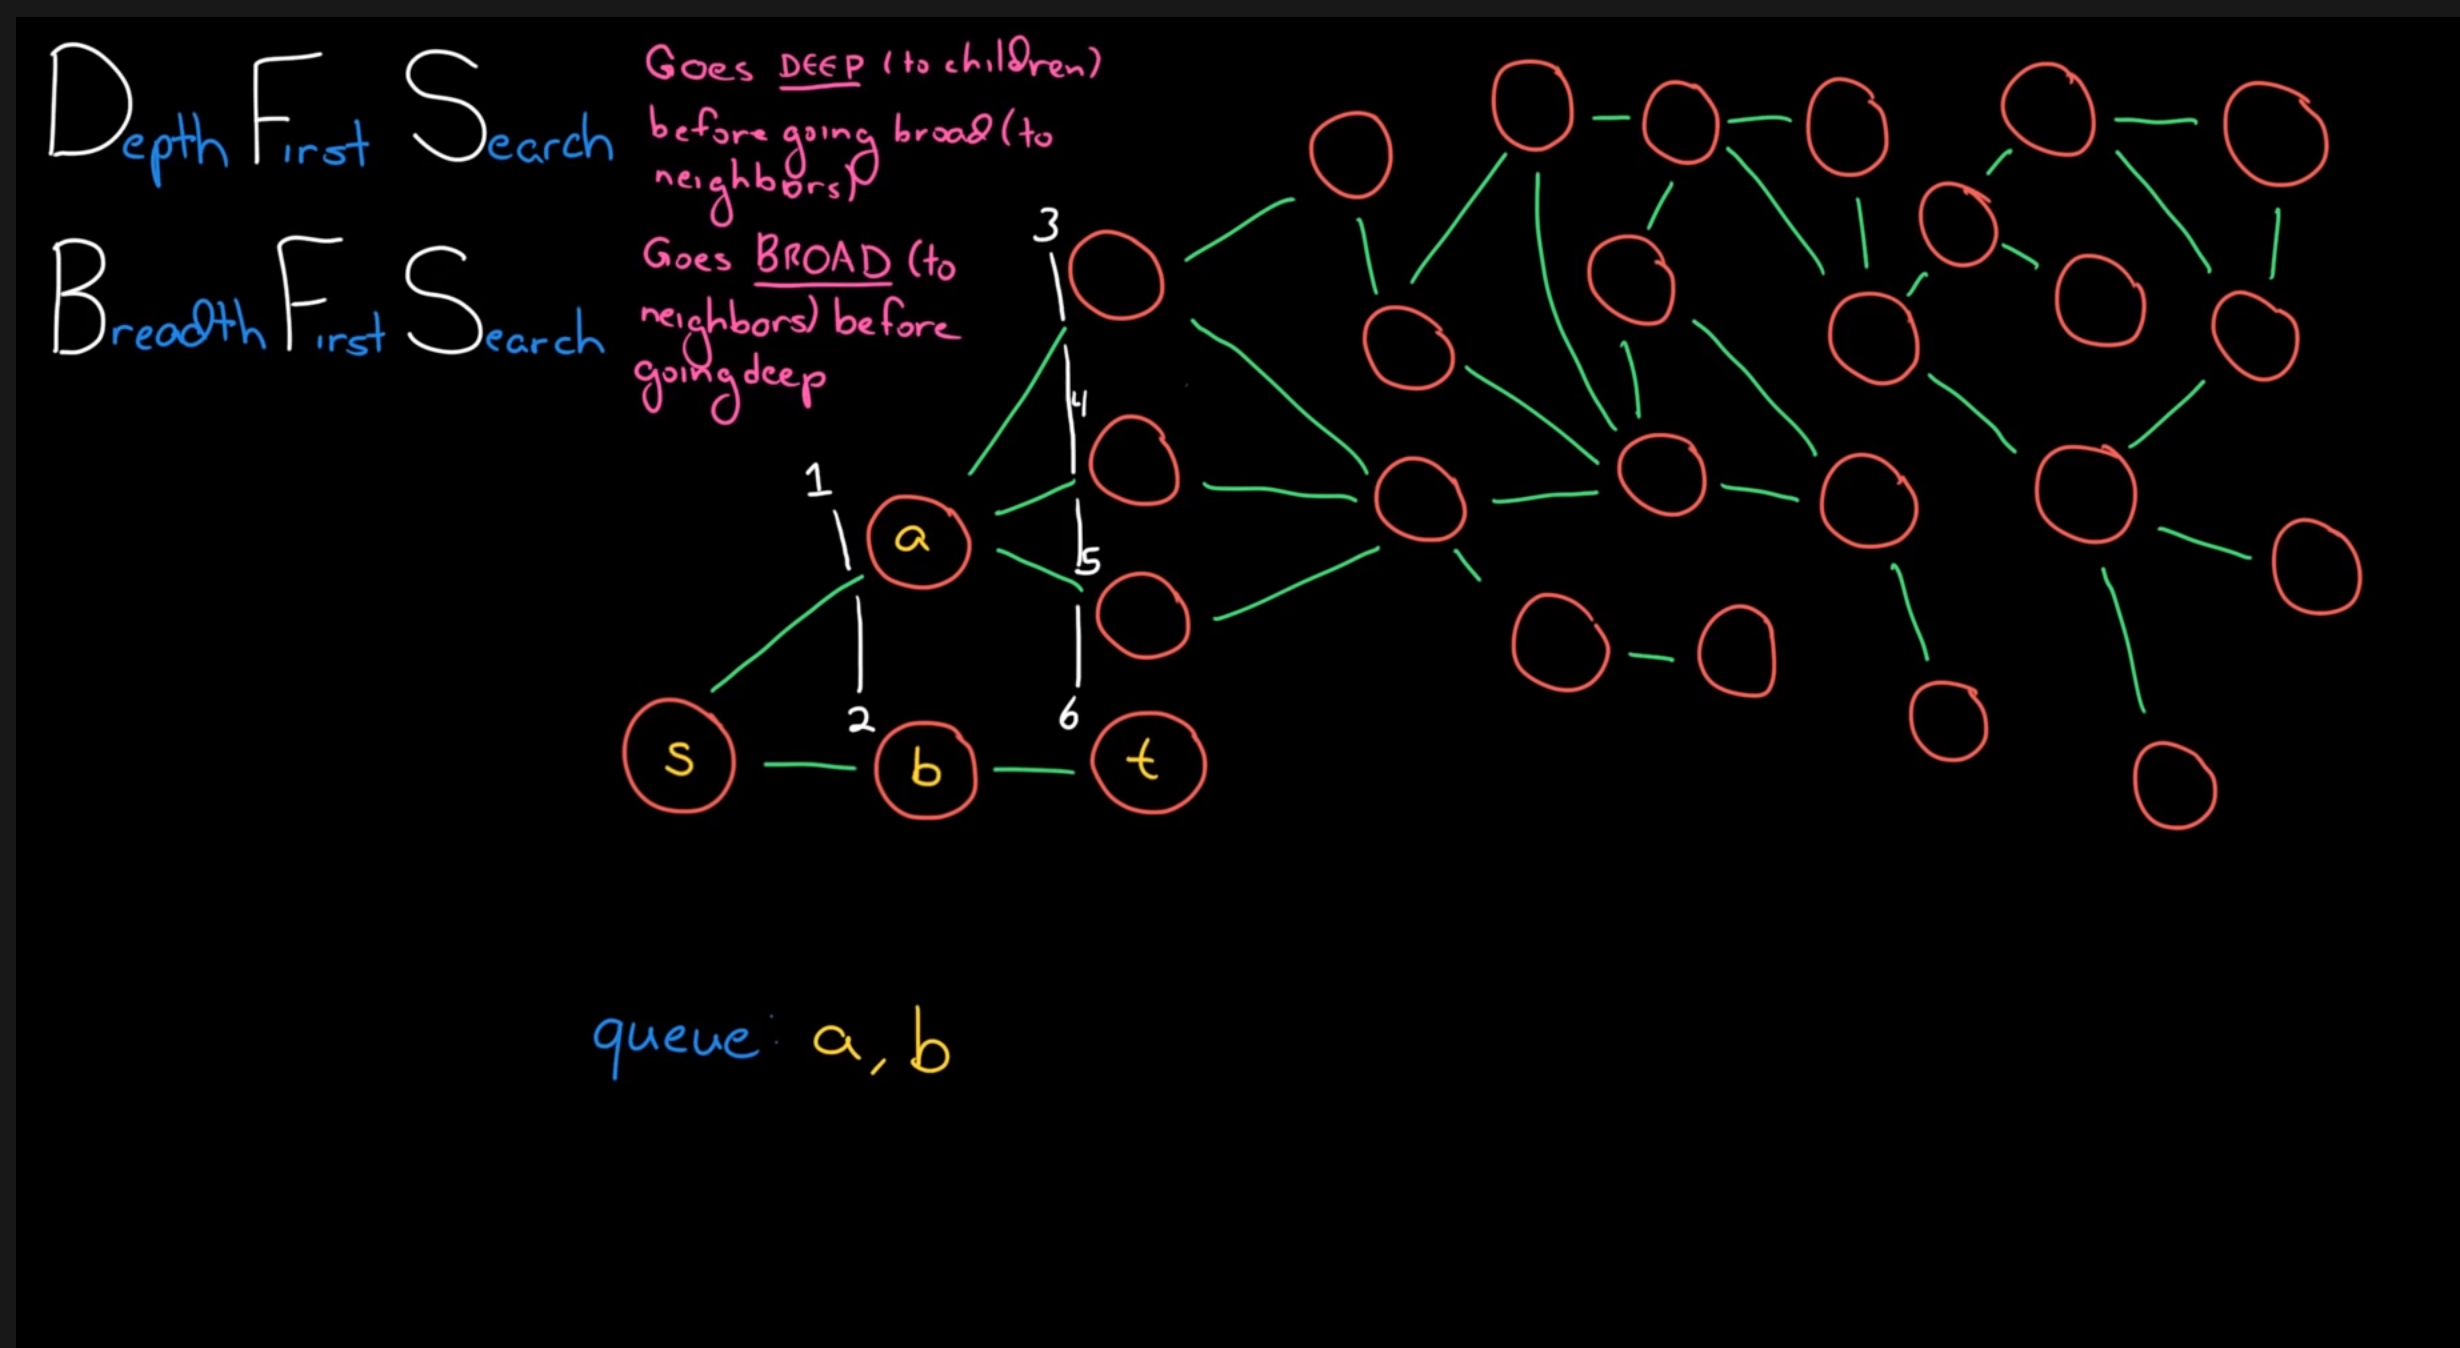 Depth First Search
Goes DEEP (to children)
before going broad (to
neighbors)
Breadth First Search
Goes BROAD (to
neighbors) before
going deep
3
4
1
a
5
2
6
s
b
t
queue: a, b